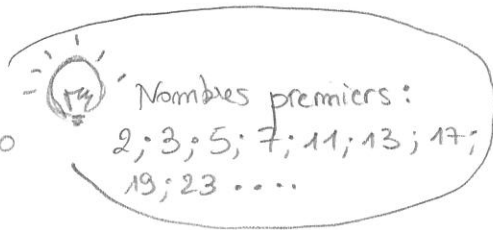 Nombres premiers :
2; 3; 5; 7; 11; 13; 17;
19; 23 ....